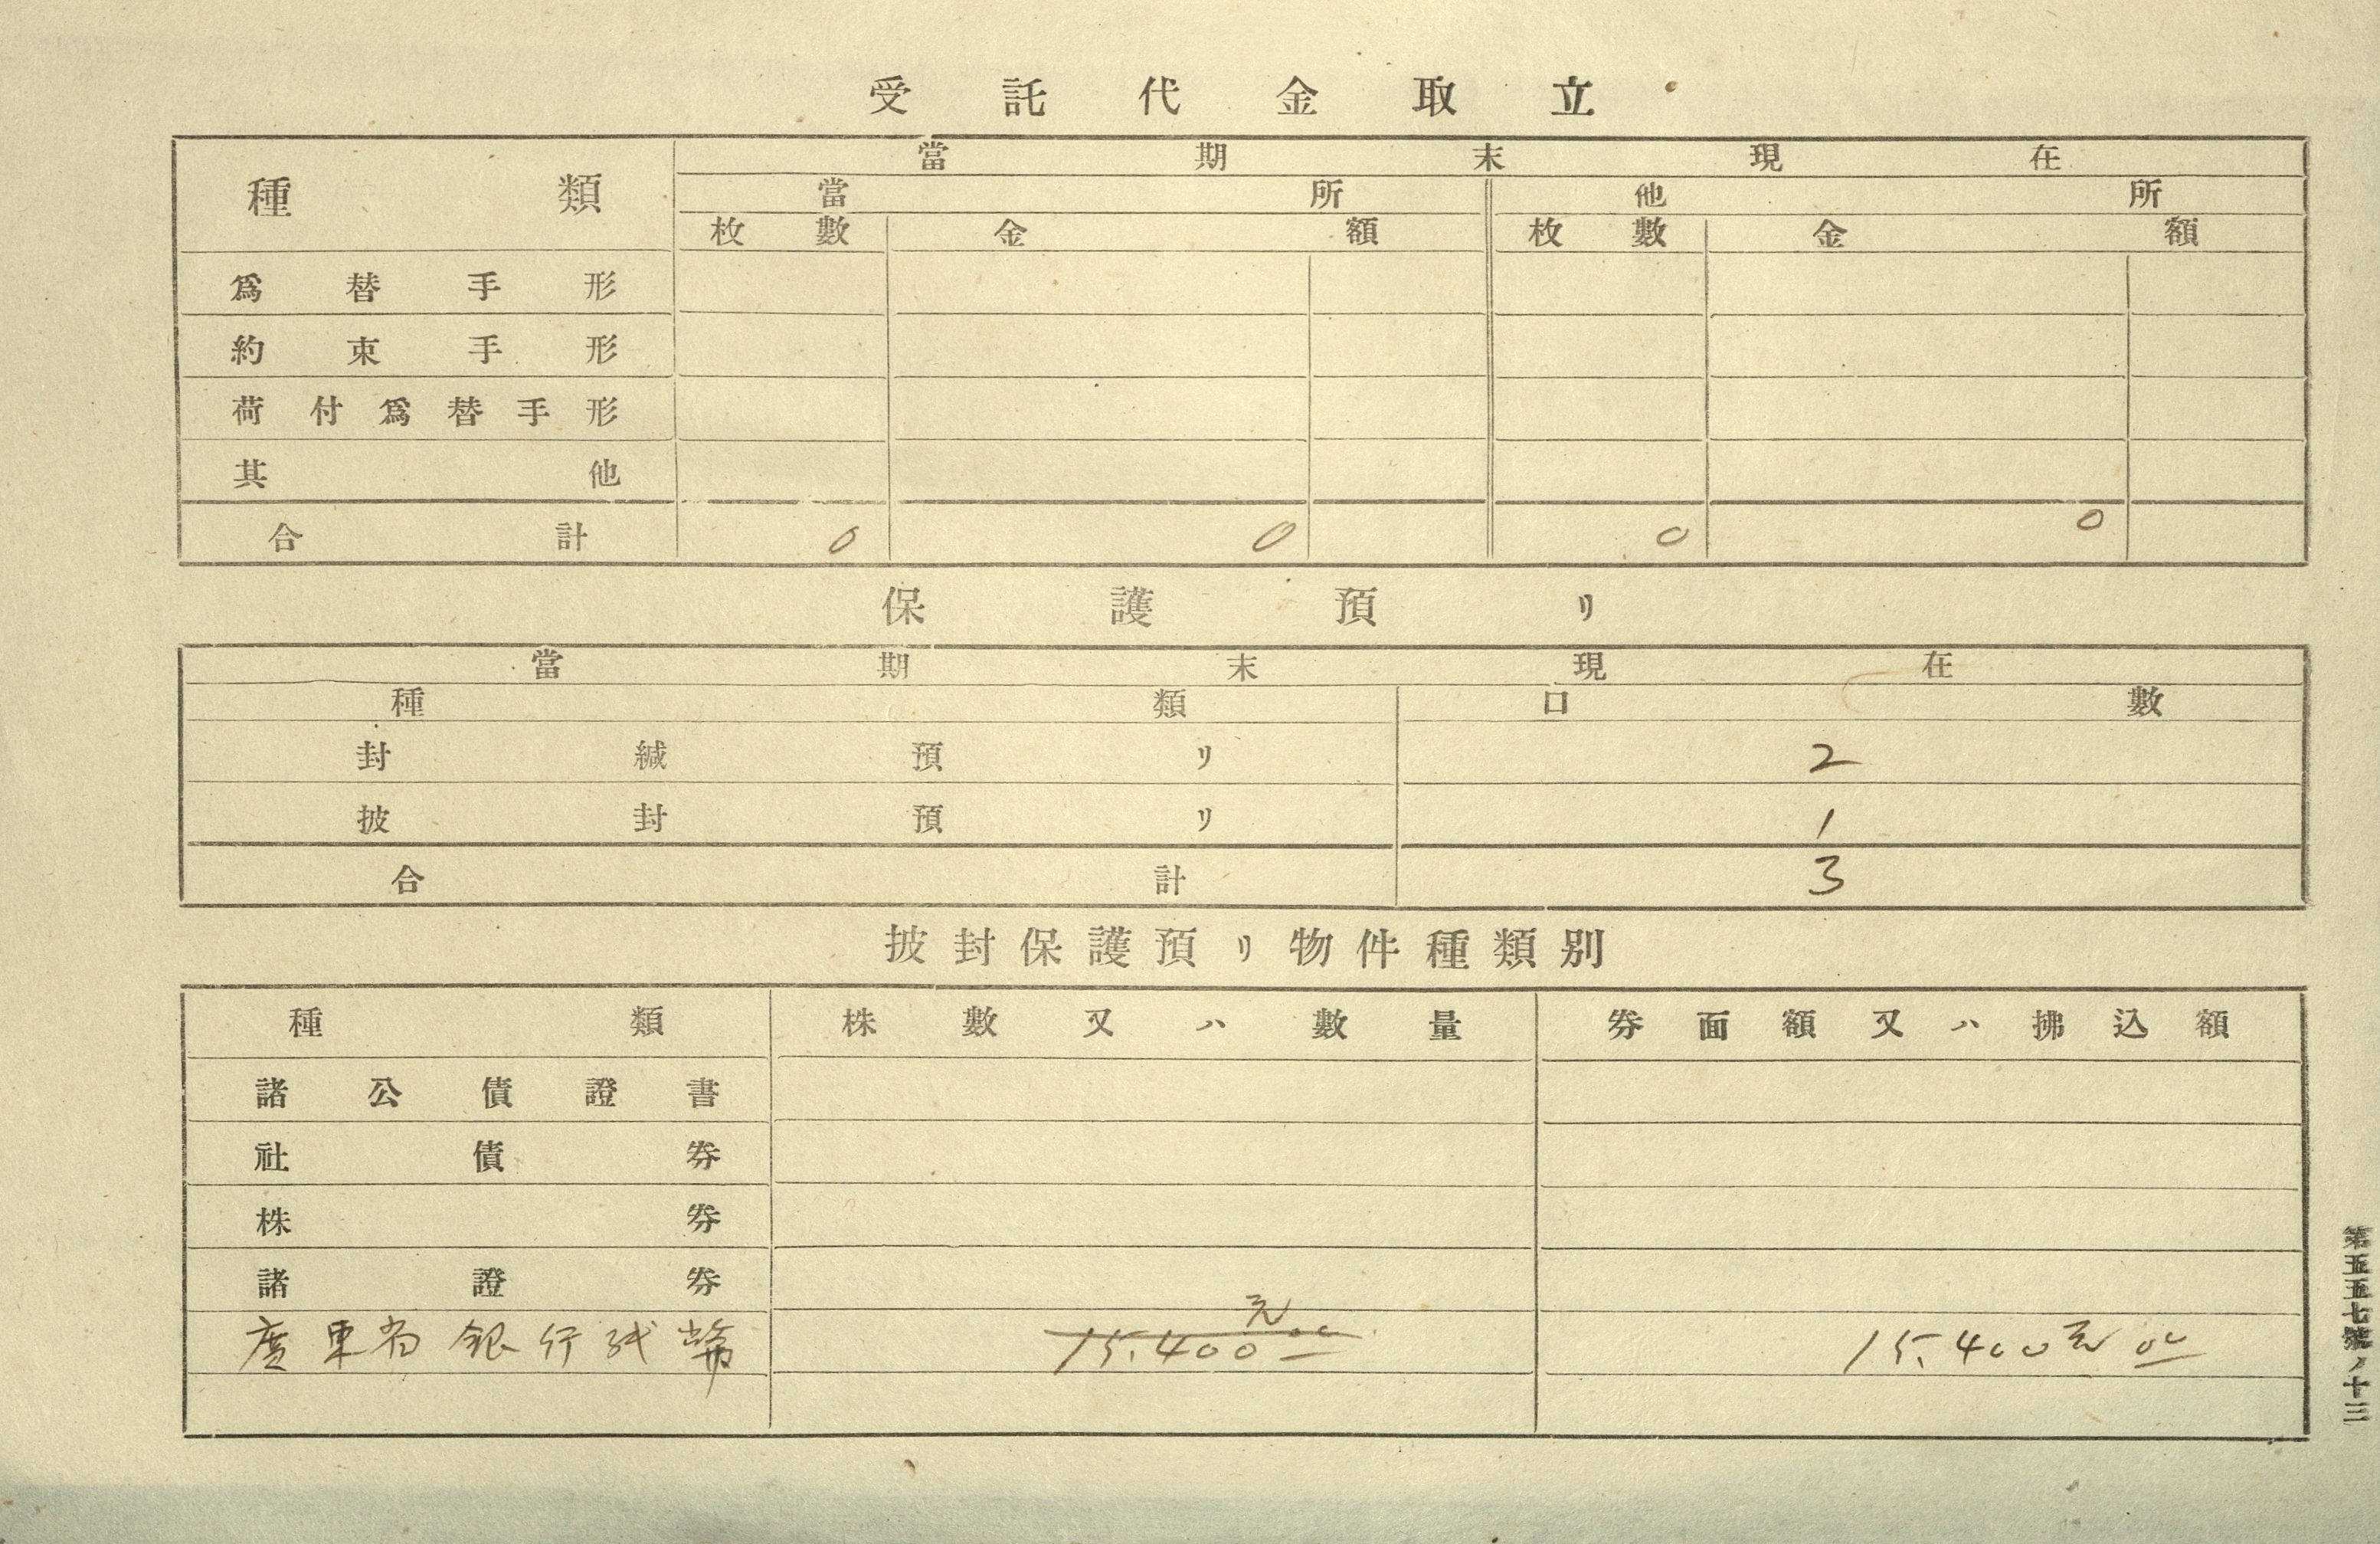 受託代金取立
種類 當期末現在
當所 他所
枚數 金額 枚數 金額
爲替手形
約束手形
荷付爲替手形
其他
合計 0 0 0 0
保護預リ
當期末現在
種類 口數
封緘預リ 2
披封預リ 1
合計 3
披封保護預リ物件種類別
種類 株數又ハ數量 券面額又ハ拂込額
諸公債證書
社債券
株券
諸證券
廣東省銀行紙幣 15.400元00 15.400元00
第五五七號ノ十三